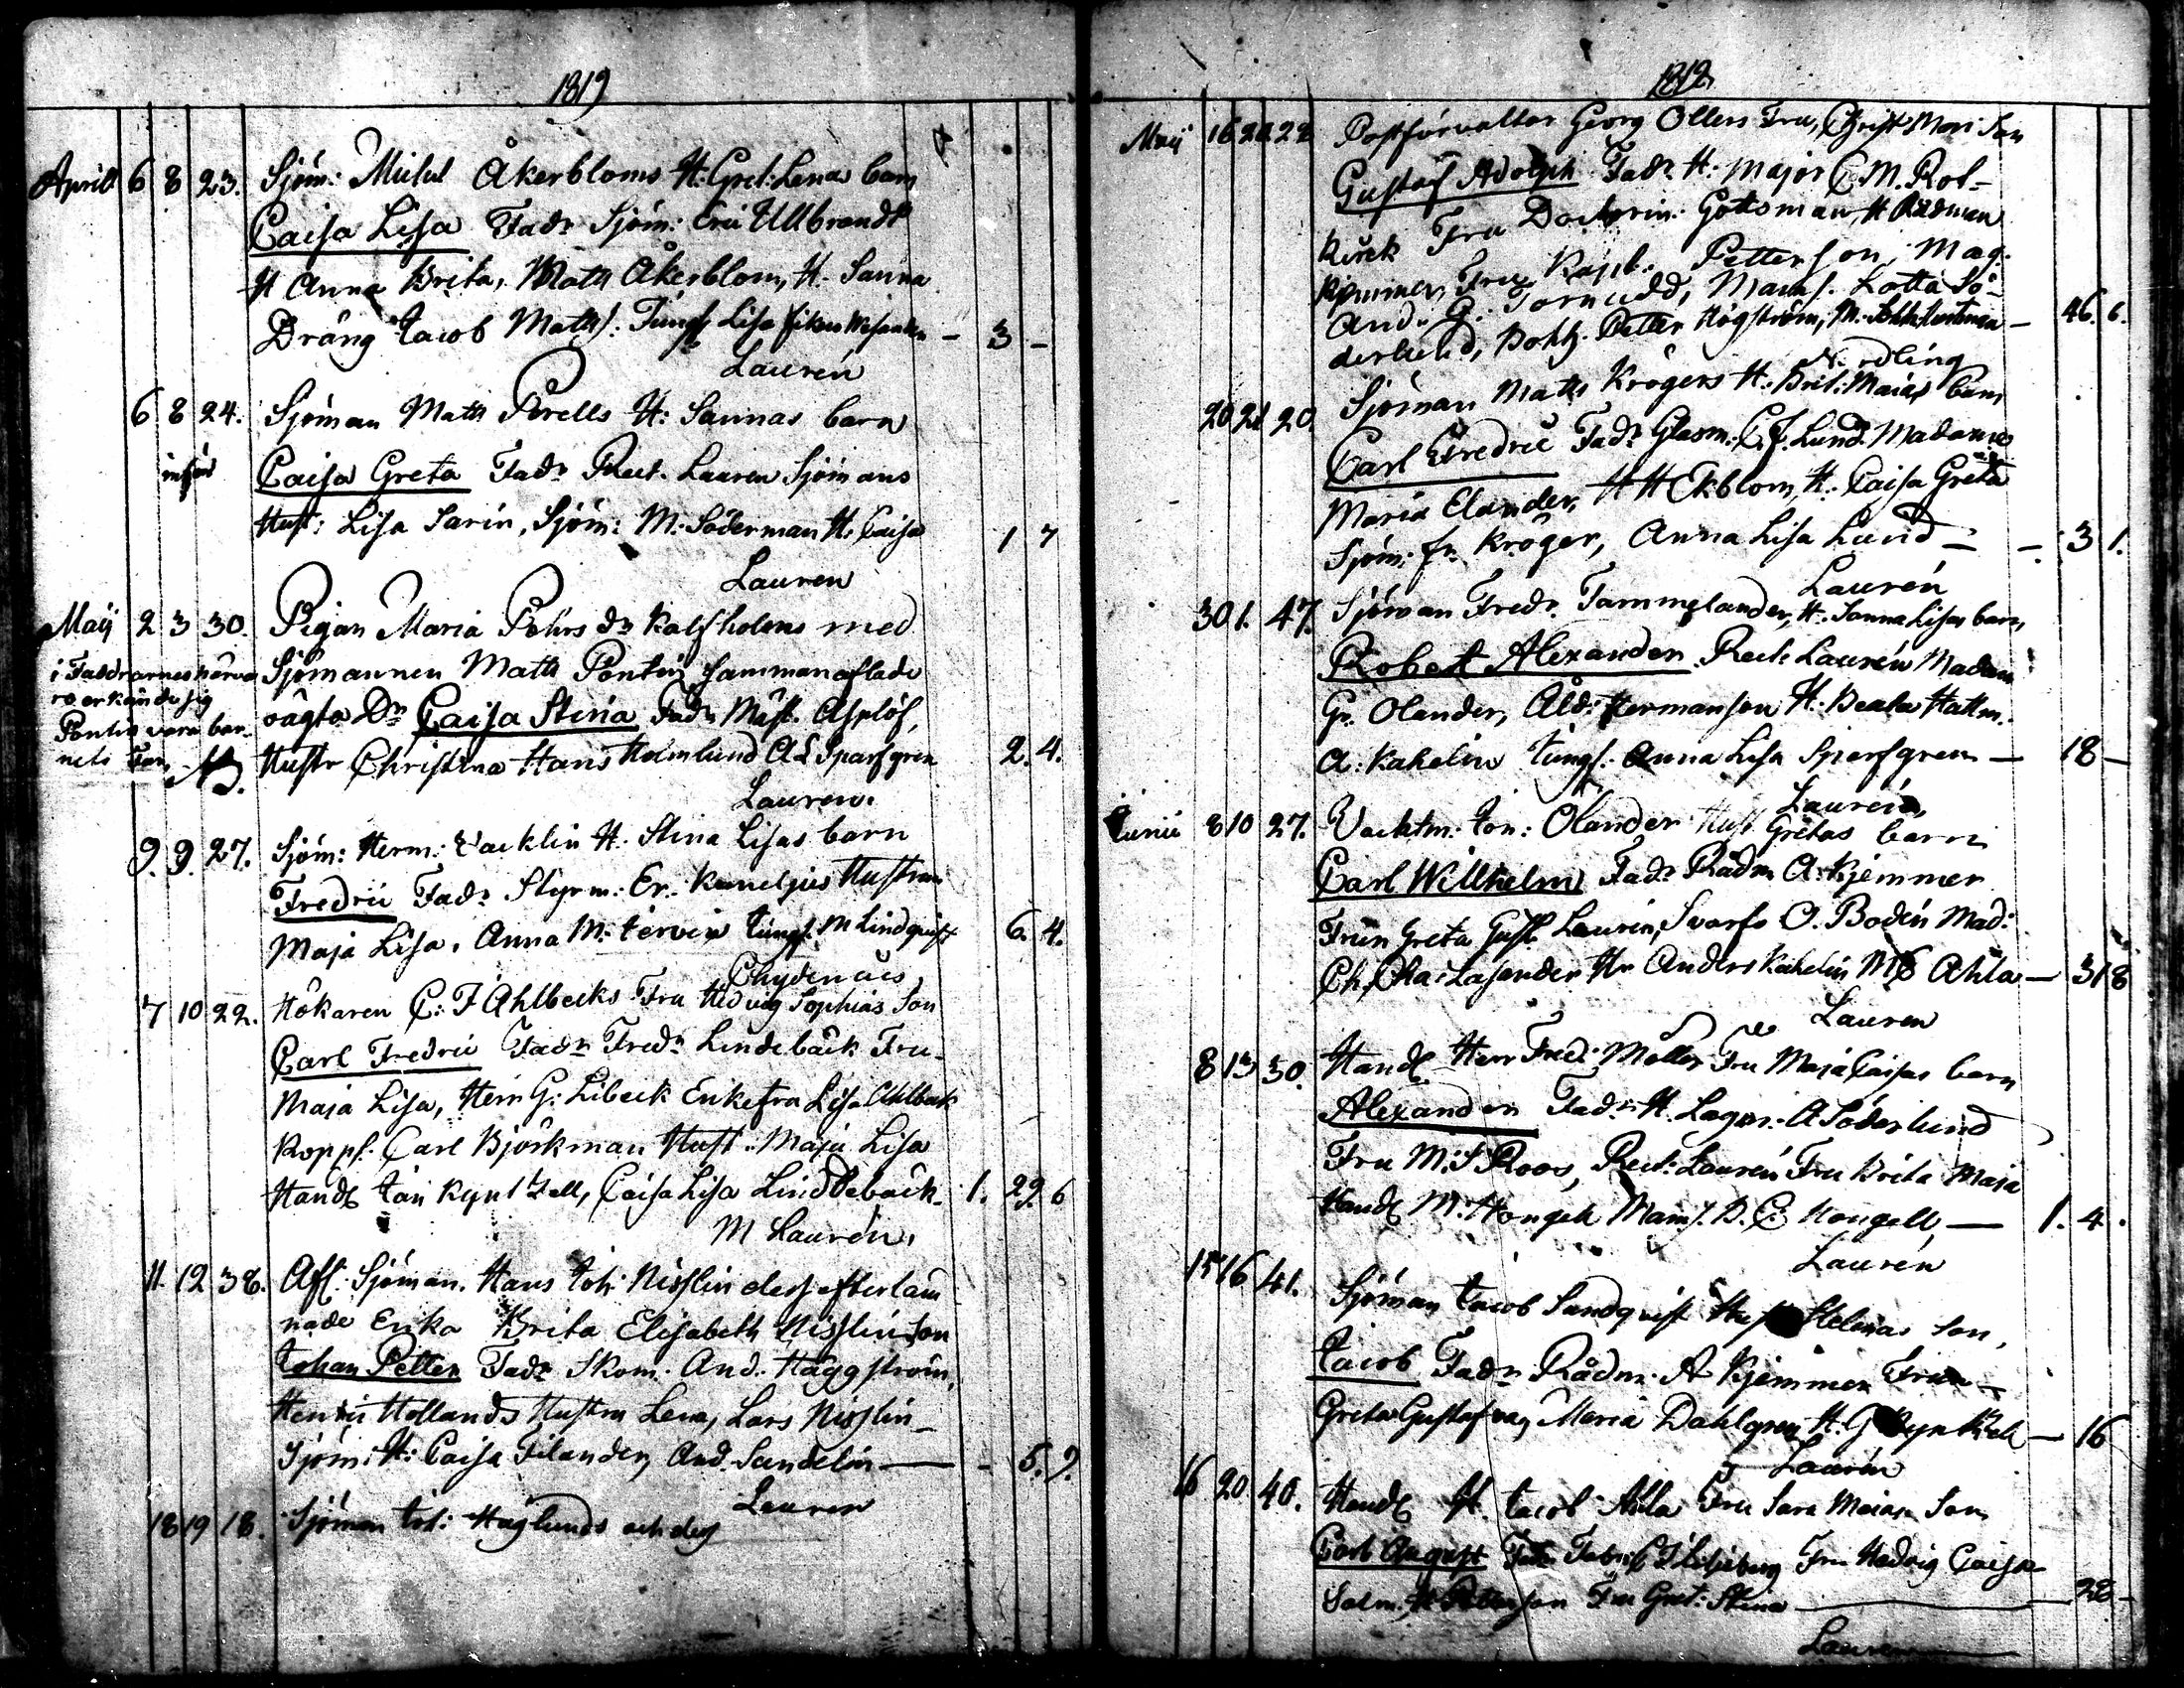 1819
Aprill 6 8 23. Sjöm: Michel Åkerbloms H: Gret: Lena barn
Caisa Lisa Fadr Sjöm: Eric Ullbrandt
H Anna Brita, Math Åkerblom, H. Sanna
Dräng Jacob Maths: Jungf Lisa - 3 -
Lauren
6 8 24. Sjöman Math Perells H: Sannas barn
Caisa Greta Fadr Rect. Lauren Sjömans
Hust: Lisa Sarin, Sjöm: M. Söderman H. Caisa 1 7
Lauren
Maij 2 3 30. Pigan Maria Pehrs dr Kalfholens med
i Faddrarnes närva Sjömannen Math Pontin sammanaflade
ro erkände sig oägta Dr Caisa Stina Fadr Mäst. Asplöf,
Pontin vara bar-
nets Far. NB. Hustr Christina Hans Holmlund A L Sparfgren 2. 4.
Lauren.
9. 9. 27. Sjöm: Herm: Vacklin H. Stina Lisas barn
Fredric Fadr Styrm: Er. Hustrun
Maja Lisa, Anna M. Jungf. M Lindqvist 6. 4.
Chydenius
7 10 22. Hökaren C: F Ahlbecks Fru Hedvig Sophias Son
Carl Fredric Fadr Fredr Lindebäck Fru
Maja Lisa, Herr G: Libeck Enkefru Lisa Ahlbeck
Koppsl. Carl Björkman Hust. Maja Lisa
Handl Jan Kyntzell, Caisa Lisa Lindebäck 1. 29 6
M Laurén.
11. 12 38. Afl: Sjöman. Hans Joh: Nisslin des efterläm
nade Enka Brita Elisabeth Nisslin Son
Johan Petter Fadr Skom. And. Häggström,
Henric Hollands Hustru Lena, Lars Nisslin
Sjöm: H: Caisa Filander, And. Sandelin - 5. 9.
Lauren
18 19 18. Sjöman Joh: Häglunds och des
1819
Maij 16 20 22 Postförvaltar Georg Ollers Fru, Christ Mari Son
Gustaf Adolph Fadr H. Major C. M. Rot-
kirck Fru Doctorin: Gottsman, H Rådman
Kjemmer, Fru Kapt: Petterson, Mag.
And. G. Tornudd, Mams. Lotta Sö-
derlund, Bokh. Petter Högström, M. - 46. 6.
20 21 20 Sjöman Maths Krögers H: Brit: Maias barn
Carl Fredric Fadr Glasm. C. J. Lund Madame
Maria Elander, H H Ekblom, H. Caisa Greta
Sjöm: fr. Kröger, Anna Lisa Lund - - 3 1.
Laurén
30 1. 47. Sjöman Fredr. Tammelander, H. Sanna Lisas barn
Robert Alexander Rect Laurén Madam
Gr. Olander, Åld: Hermanson H. Beata Hattm.
A: Kahelin Jungf. Anna Lisa Sparfgren — 18 -
Laurén
Junii 8 10 27. Vacktm: Jon: Olander Hust Gretas barn
Carl Willhelm Fadr Rådm A: Kjemmer
Frun Greta Gust. Laurin, Svarfv O. Bodén Mad:
Ch, Cha: Lasander Hr Anders Kahelin Ahla — 31 8
Lauren
8 13 30. Handl Herr Fred: Möller Fru Maja Caisas barn
Alexander Fadr H. Lagm: A Söderlund
Fru M: S Roos, Rect: Laurén Fru Brita Maja
Handl M: Hongell Mams. B. C: Hongell — 1. 4.
Laurén
15 16 41. Sjöman Jacob Sandqvist Hust Helenas Son,
Jacob Fadr Rådm. A Kjemmer Frun
Greta Gustafva, Maria Dahlgren, H. G — 16
Laurén
16 20 40. Handl H. Jacob Ahla Fru Sara Maias Son
Carl August Fadr Fabri Fru Hedvig Caisa
Salm. H Petterson Fru Gret: Stina — 28 -
Lauren